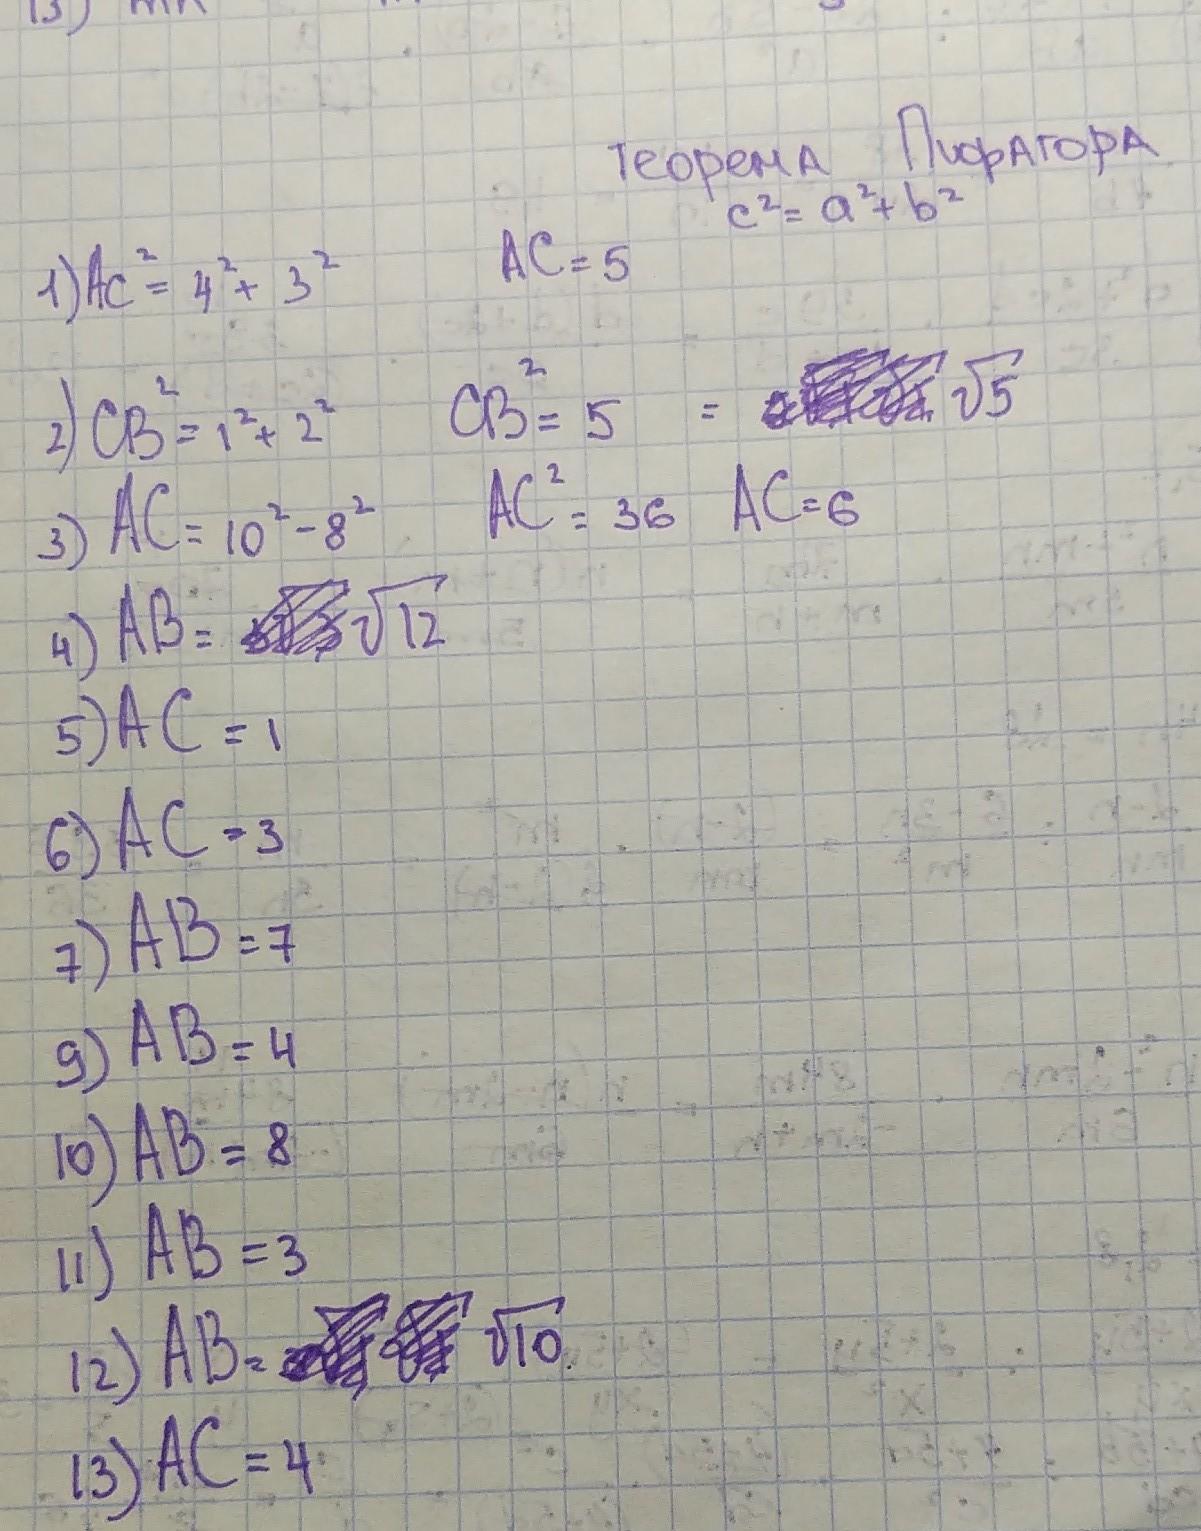 Теорема Пифагора
c² = a² + b²
1) AC² = 4² + 3² AC = 5
2) CB² = 1² + 2² CB² = 5 = √5
3) AC = 10² - 8² AC² = 36 AC = 6
4) AB = √12
5) AC = 1
6) AC = 3
7) AB = 7
9) AB = 4
10) AB = 8
11) AB = 3
12) AB = √10
13) AC = 4